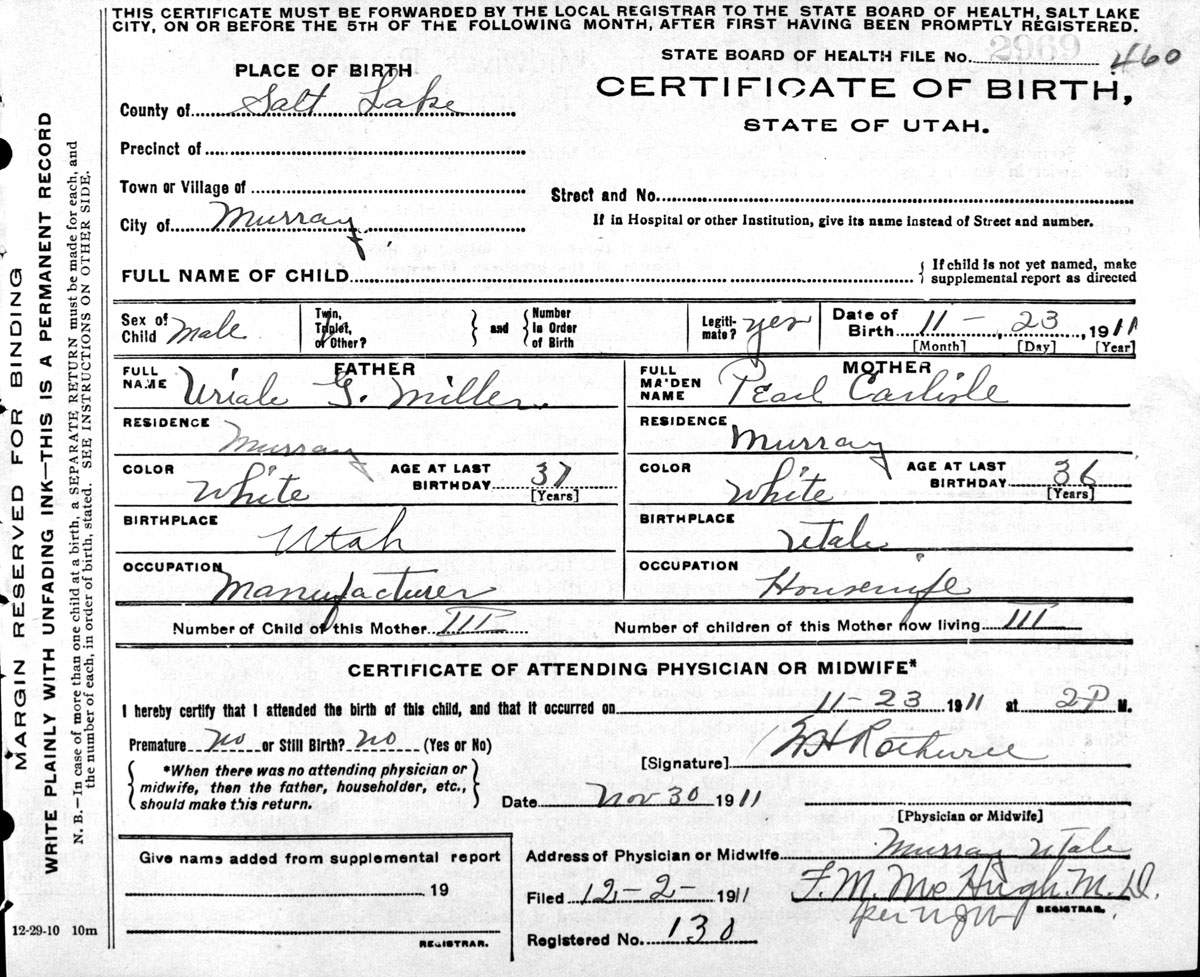 THIS CERTIFICATE MUST BE FORWARDED BY THE LOCAL REGISTRAR TO THE STATE BOARD OF HEALTH, SALT LAKE
CITY, ON OR BEFORE THE 5TH OF THE FOLLOWING MONTH, AFTER FIRST HAVING BEEN PROMPTLY REGISTERED.
STATE BOARD OF HEALTH FILE No. 2969 460
PLACE OF BIRTH
CERTIFICATE OF BIRTH,
STATE OF UTAH.
County of Salt Lake
Precinct of
Town or Village of
Street and No.
City of Murray
If in Hospital or other Institution, give its name instead of Street and number.
FULL NAME OF CHILD
{ If child is not yet named, make
supplemental report as directed
Sex of Child Male
Twin, Triplet, or Other? } and { Number in Order of Birth
Legiti- mate? yes
Date of Birth 11 - 23 1911
[Month] [Day] [Year]
FATHER
FULL NAME Uriah G. Miller
MOTHER
FULL MAIDEN NAME Pearl Carlisle
RESIDENCE Murray
RESIDENCE Murray
COLOR White
AGE AT LAST BIRTHDAY 37 [Years]
COLOR White
AGE AT LAST BIRTHDAY 36 [Years]
BIRTHPLACE Utah
BIRTHPLACE Utah
OCCUPATION Manufacturer
OCCUPATION Housewife
Number of Child of this Mother III
Number of children of this Mother now living III
CERTIFICATE OF ATTENDING PHYSICIAN OR MIDWIFE*
I hereby certify that I attended the birth of this child, and that it occurred on 11-23 1911 at 2 P M.
Premature no or Still Birth? no (Yes or No)
[Signature]
{ *When there was no attending physician or
midwife, then the father, householder, etc.,
should make this return. }
Date Nov 30 1911
[Physician or Midwife]
Give name added from supplemental report
19
REGISTRAR.
Address of Physician or Midwife Murray Utah
Filed 12-2- 1911
F. M. McHugh M. D.
per
REGISTRAR.
Registered No. 130
12-29-10 10m
MARGIN RESERVED FOR BINDING
WRITE PLAINLY WITH UNFADING INK—THIS IS A PERMANENT RECORD
N. B.—In case of more than one child at a birth, a SEPARATE RETURN must be made for each, and
the number of each, in order of birth, stated. SEE INSTRUCTIONS ON OTHER SIDE.